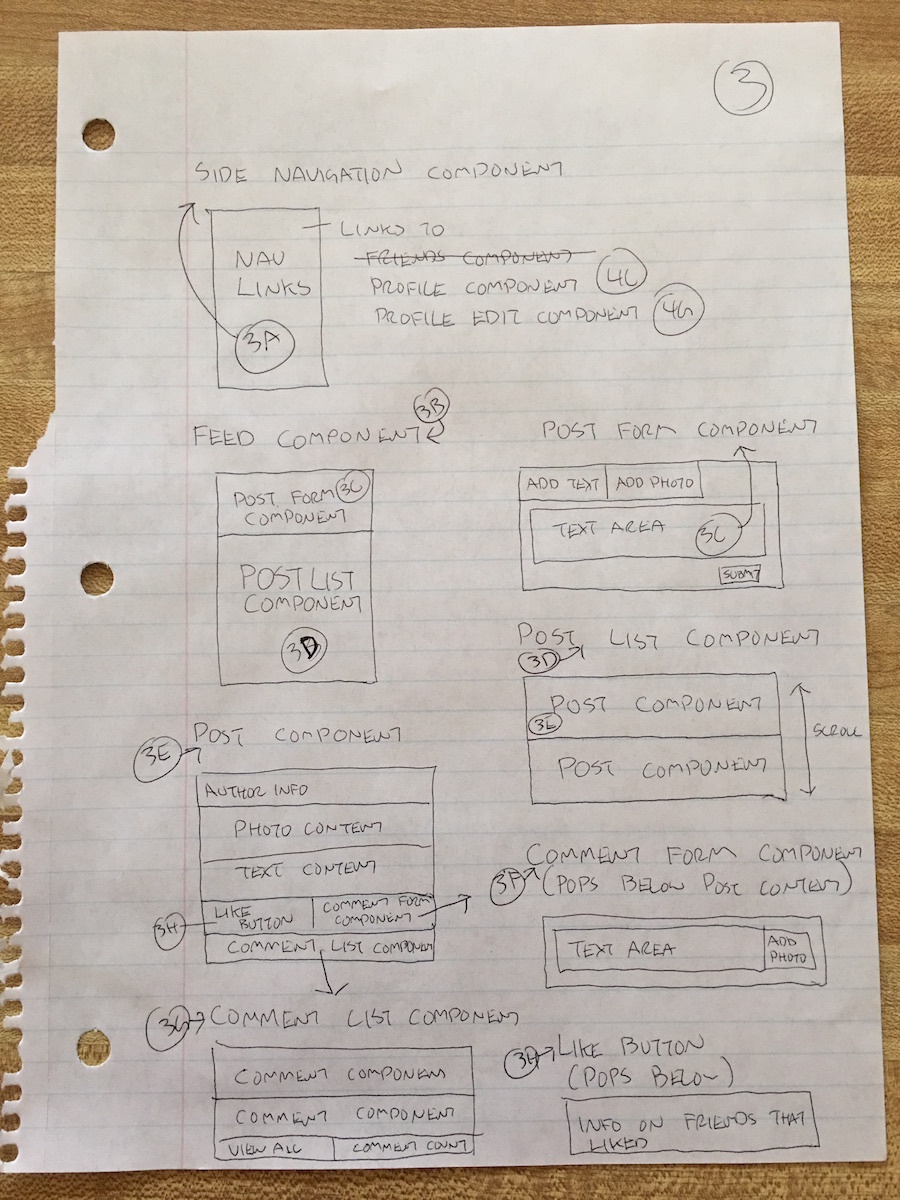 3
SIDE NAVIGATION COMPONENT
LINKS TO
NAV
LINKS
3A
FRIENDS COMPONENT
PROFILE COMPONENT 4C
PROFILE EDIT COMPONENT 4G
3B
FEED COMPONENT
POST FORM 3C
COMPONENT
POST LIST
COMPONENT
3D
POST FORM COMPONENT
ADD TEXT ADD PHOTO
TEXT AREA 3C
SUBMIT
POST LIST COMPONENT
3D
POST COMPONENT
3E
POST COMPONENT
SCROLL
POST COMPONENT
3E
AUTHOR INFO
PHOTO CONTENT
TEXT CONTENT
LIKE
BUTTON
3H
COMMENT FORM
COMPONENT
COMMENT LIST COMPONENT
COMMENT FORM COMPONENT
3F (POPS BELOW POST CONTENT)
TEXT AREA
ADD
PHOTO
3G COMMENT LIST COMPONENT
COMMENT COMPONENT
COMMENT COMPONENT
VIEW ALL COMMENT COUNT
3H LIKE BUTTON
(POPS BELOW)
INFO ON FRIENDS THAT
LIKED